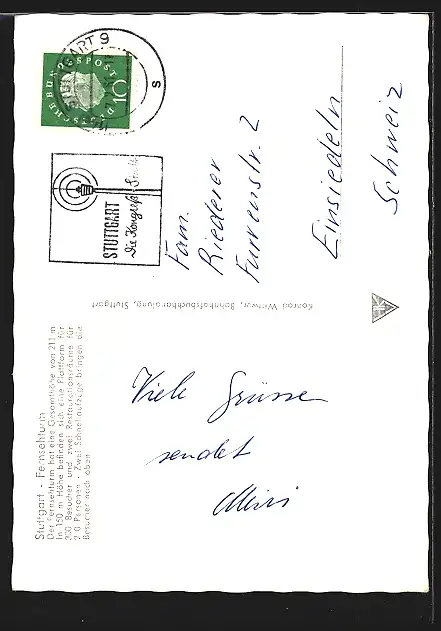 Stuttgart - Fernsehturm
Der Fernsehturm hat eine Gesamthöhe von 211 m
In 150 m Höhe befindet sich eine Plattform für
300 Besucher und zwei Restaurationsräume für
2 0 Personen - Zwei Schnellaufzüge bringen die
Besucher nach oben
Viele Grüsse
sendet
Konrad Wittwer, Bahnhofbuchhandlung, Stuttgart
STUTTGART 9
s
DEUTSCHE BUNDESPOST
10
STUTTGART
Die Kongreß-Stadt
Fam.
Riederer
Furrenstr. 2
Einsiedeln
Schweiz